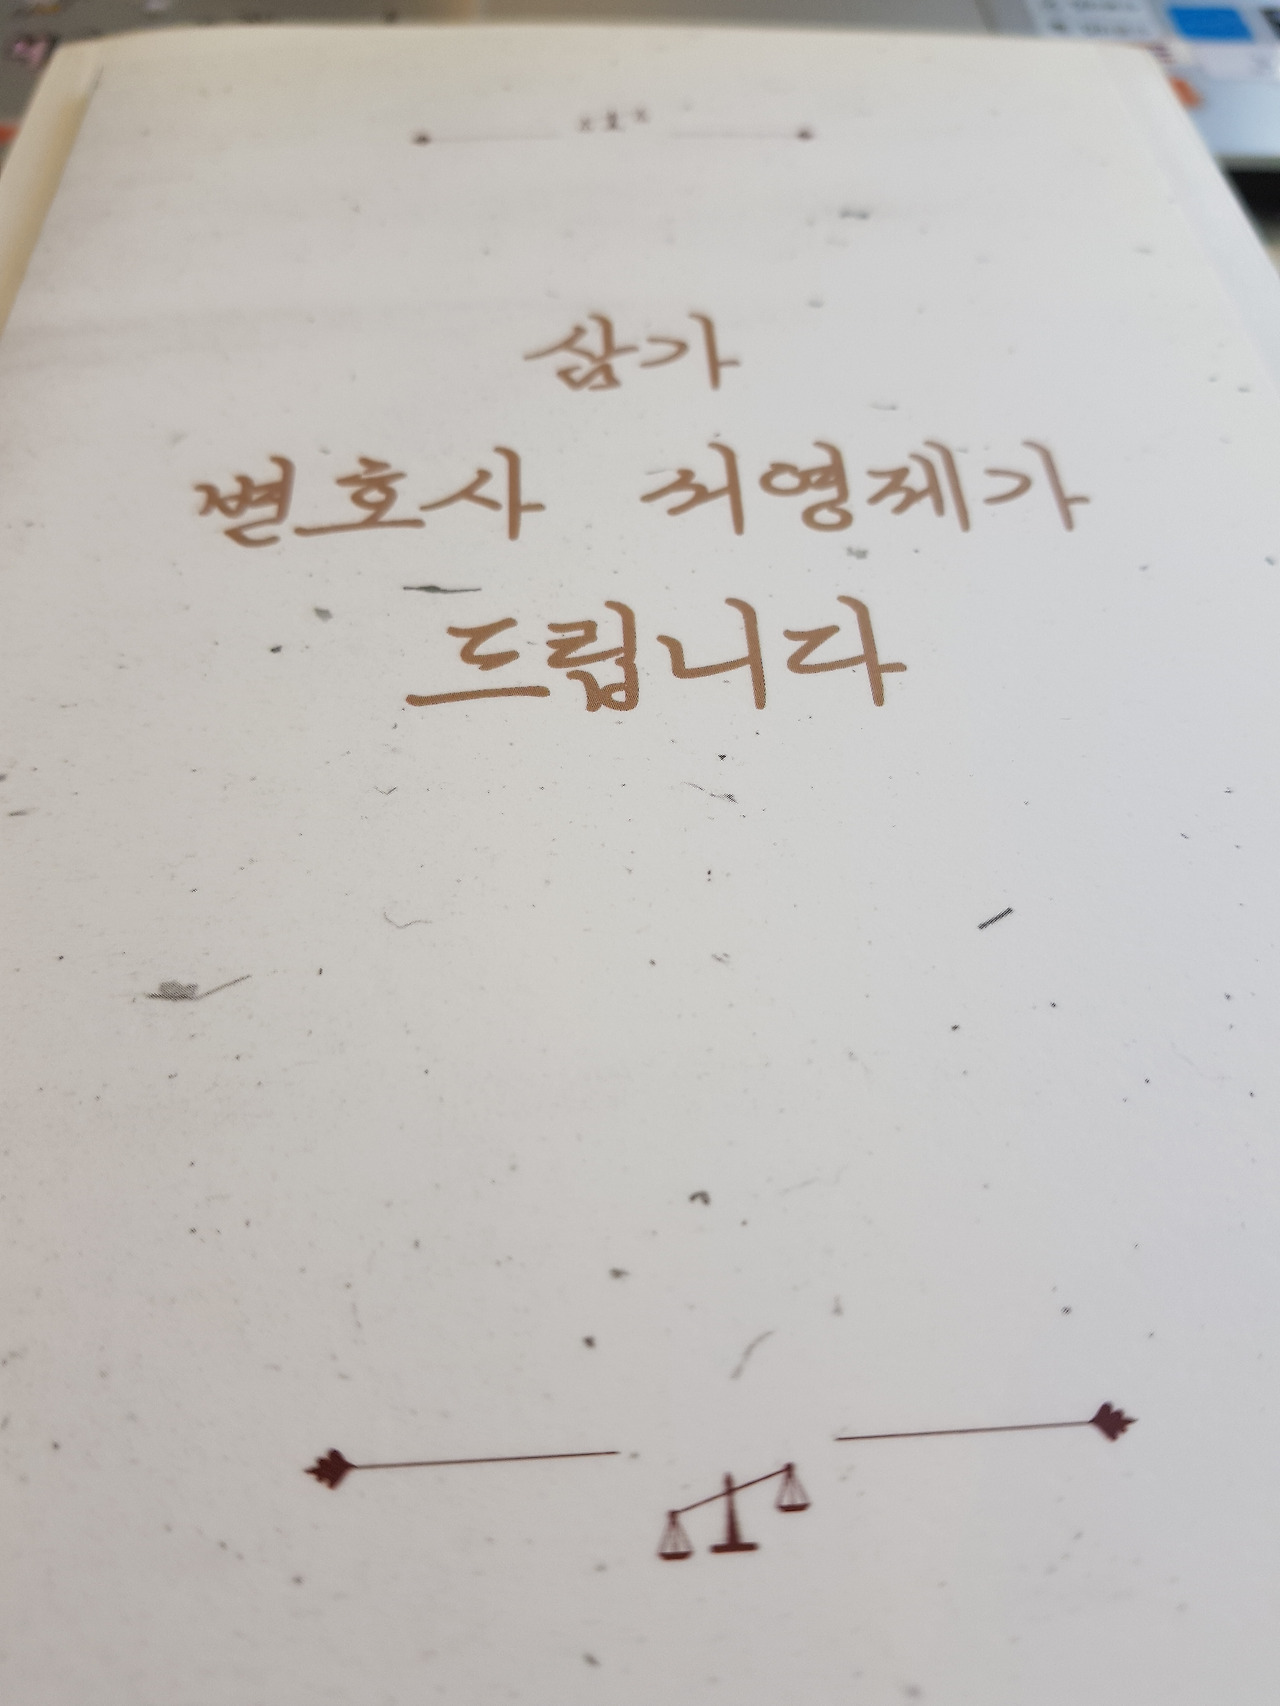 삼가
변호사 최영제가
드립니다